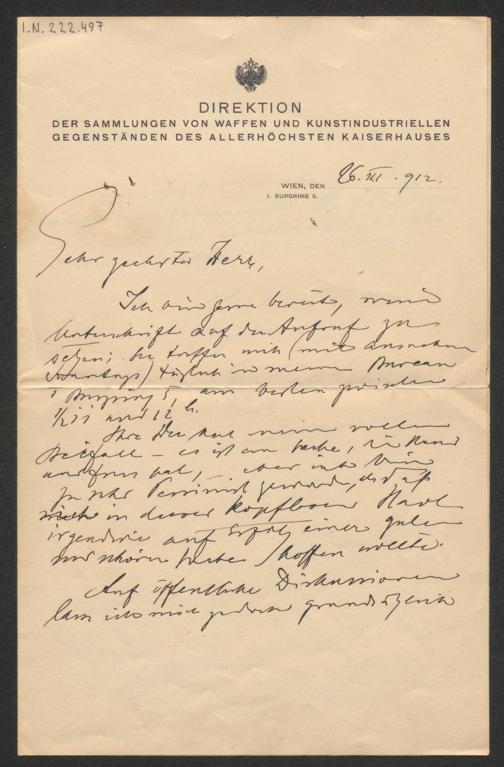 I.N. 222.497
DIREKTION
DER SAMMLUNGEN VON WAFFEN UND KUNSTINDUSTRIELLEN
GEGENSTÄNDEN DES ALLERHÖCHSTEN KAISERHAUSES
WIEN, DEN 26. XI. 912.
I. BURGRING 5.
Sehr geehrter Herr,
Ich bin gerne bereit, meine
Unterschrift auf den Aufruf zu
setzen; Sie treffen mich (mit Ausnahme
Sonntags) täglich in meinem Bureau
I Burgring 5, am besten zwischen
1/2 11 und 12 h.
Ihre Idee hat meinen vollen
Beifall – es ist eine Sache, die Hand
und Fuss hat, – aber ich bin
zu sehr Pessimist geworden, als daß
ich in dieser kopflosen Stadt
irgendwie auf Erfolg einer guten
und schönen Sache hoffen wollte.
Auf öffentliche Diskussionen
lasse ich mich jedoch grundsätzlich